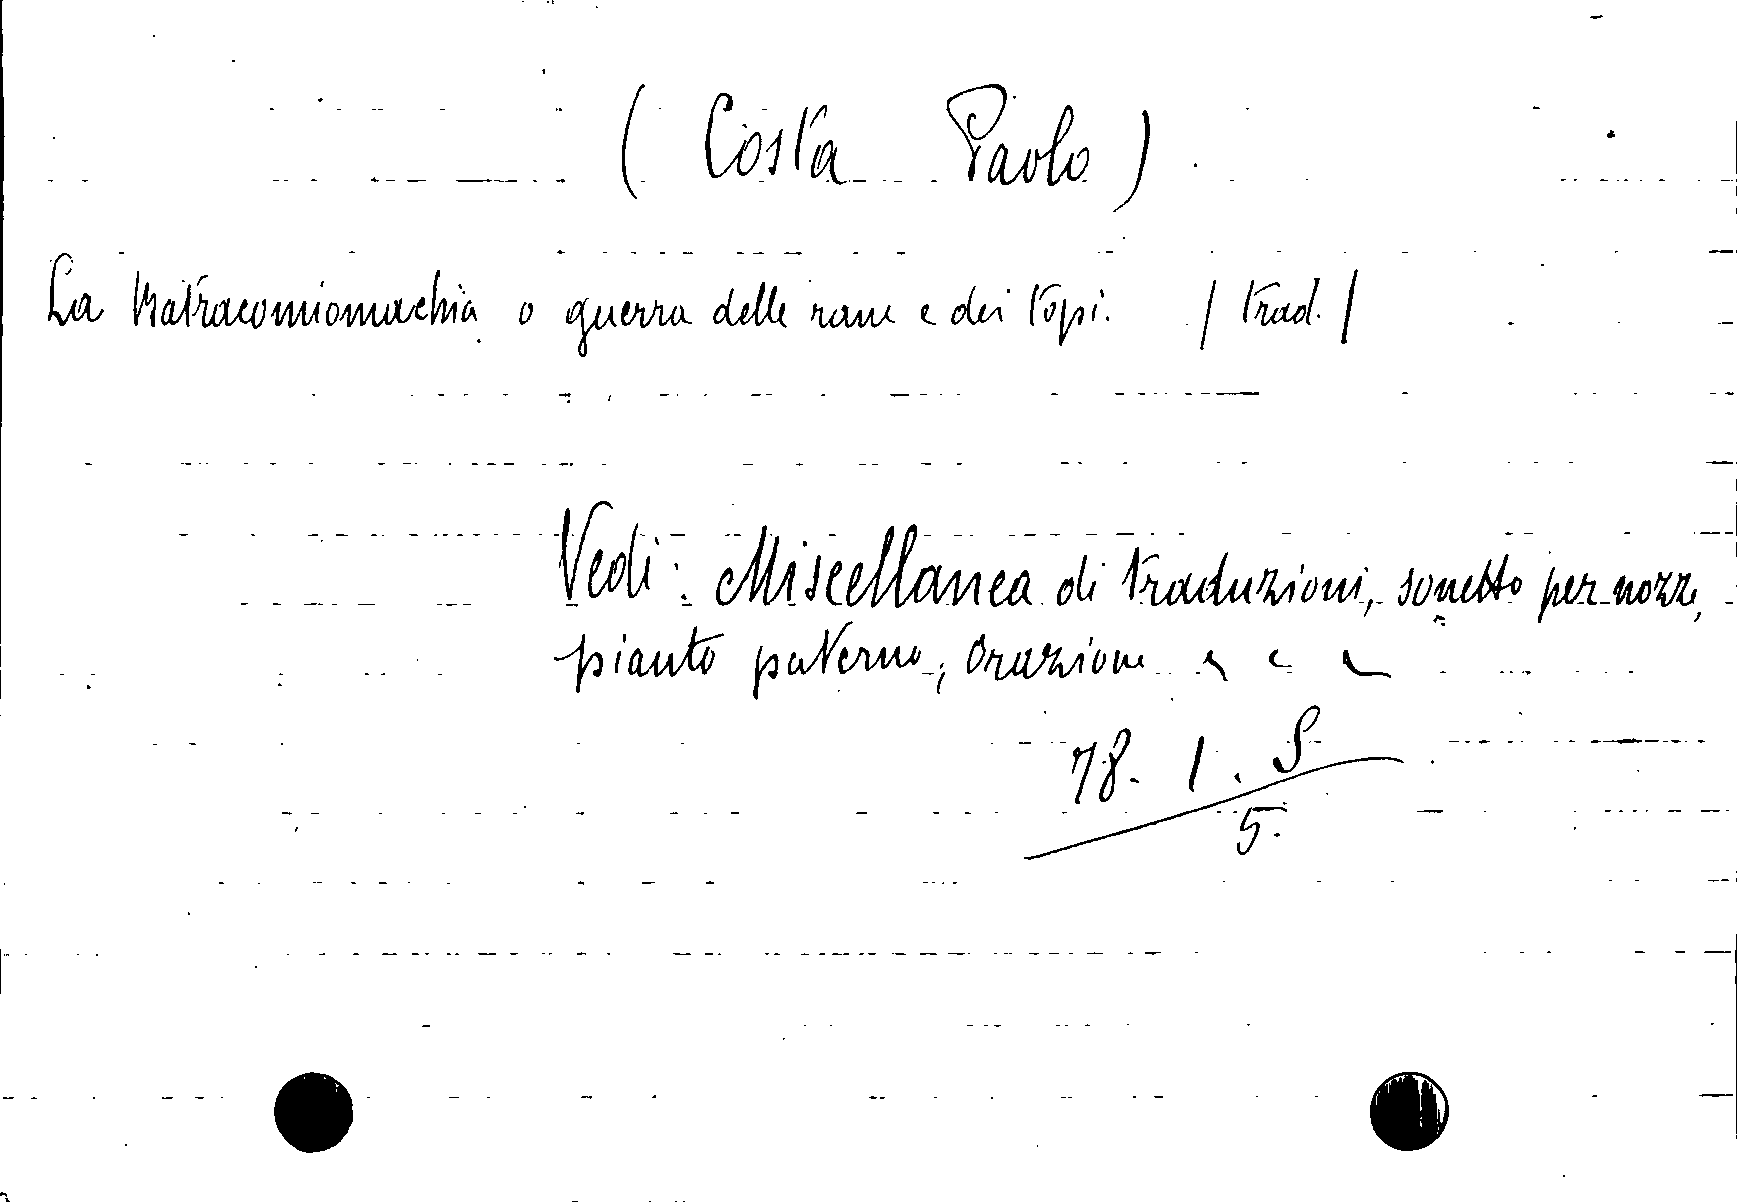 ( Costa Paolo )
La Batracomiomachia o guerra delle rane e dei topi. / Trad. /
Vedi: Miscellanea di traduzioni, sonetto per nozze,
pianto paterno, Orazione
78. 1. S
5.